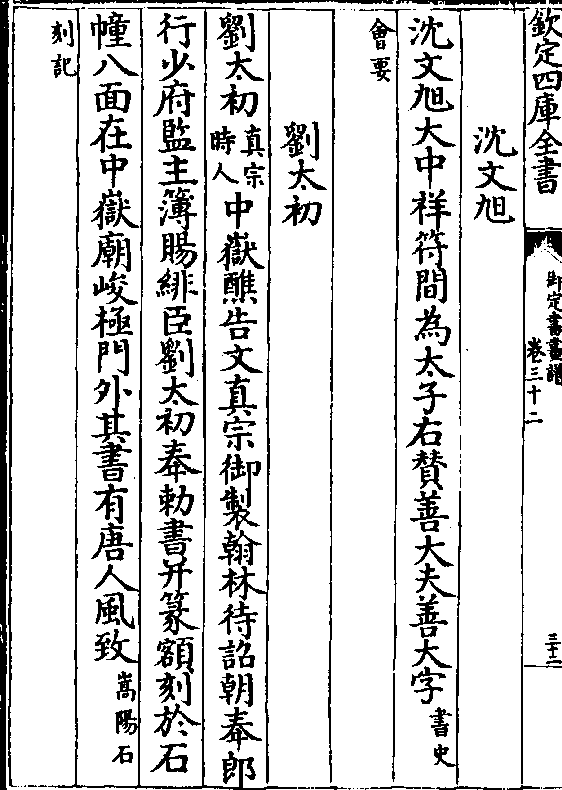 欽定四庫全書
御定書畫譜
卷三十二
三十二
沈文旭
沈文旭大中祥符間為太子右贊善大夫善大字書史
會要
劉太初
劉太初真宗時人中嶽醮告文真宗御製翰林待詔朝奉郎
行少府監主簿賜緋臣劉太初奉勅書并篆額刻於石
幢八面在中嶽廟峻極門外其書有唐人風致嵩陽石
刻記